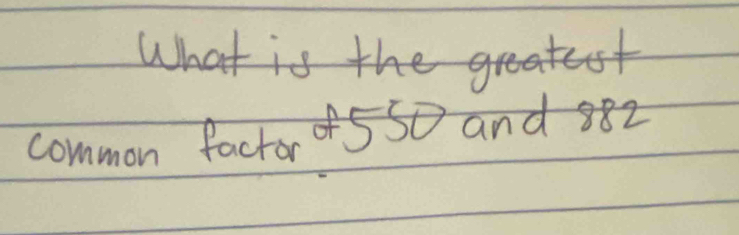 What is the greatest
common factor of 550 and 882